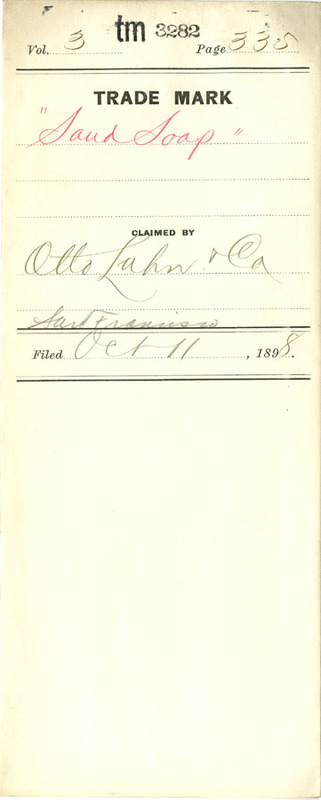 tm 3282
Vol. 3 Page 335
TRADE MARK
"Sand Soap"
CLAIMED BY
Otto Luhn & Co
San Francisco
Filed Oct 11, 1898.